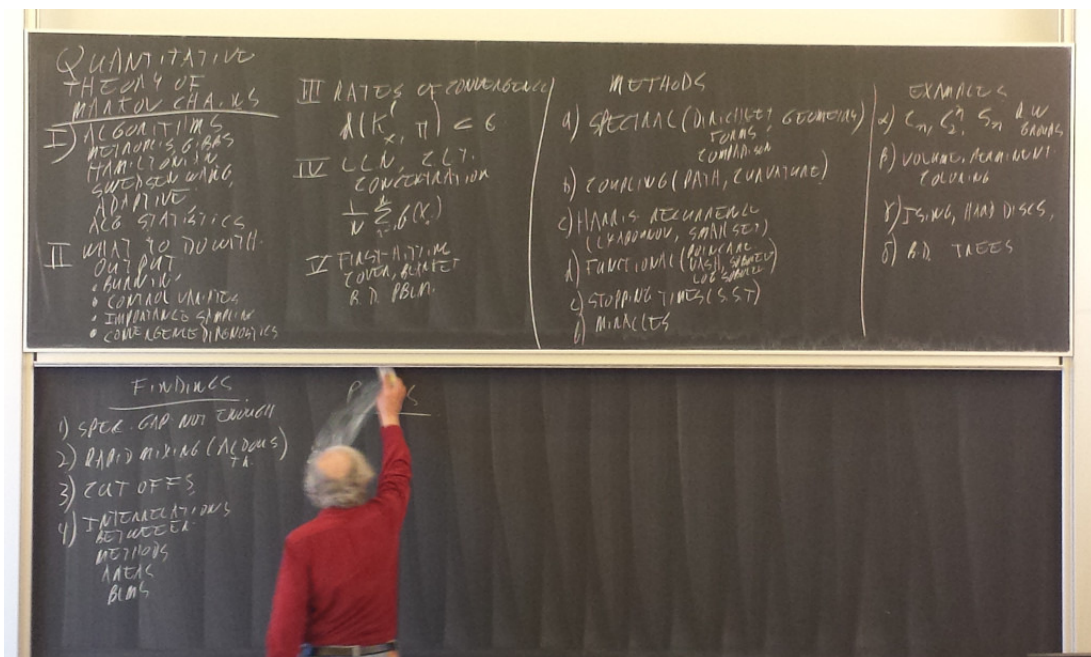 QUANTITATIVE
THEORY OF
MARKOV CHAINS
I) ALGORITHMS
METROPOLIS, GIBBS
HAMILTONIAN
SWENSEN WANG,
ADAPTIVE,
ALG STATISTICS
II WHAT TO DO WITH
OUTPUT
• BURNIN,
• CONTROL VARIATES
• IMPORTANCE SAMPLING
• CONVERGENCE DIAGNOSTICS
III RATES OF CONVERGENCE
d(K_x^l, π) < ε
IV LLN, CLT.
CONCENTRATION
1/N Σ f(X_i)
V FIRST-HITTING
COVER, BLANKET
B.D. PBLM.
METHODS
a) SPECTRAL (DIRICHLET GEOMETRY)
FORMS,
COMPARISON
b) COUPLING (PATH, CURVATURE)
c) HARRIS RECURRENCE
(LYAPONOV, SMALL SET)
d) FUNCTIONAL (POINCARE
NASH, SOBOLEV
LOG SOBOLEV
e) STOPPING TIMES (S.S.T)
f) MIRACLES
EXAMPLES
α) C_n, C_2^n, S_n R.W
GROUPS
β) VOLUME, PERMANENT.
COLORING
γ) ISING, HARD DISCS,
δ) B.D. TREES
FINDINGS
1) SPEC. GAP NOT ENOUGH
2) RAPID MIXING (ALDOUS)
3) CUT OFFS
4) INTERRELATIONS
BETWEEN
METHODS
AREAS